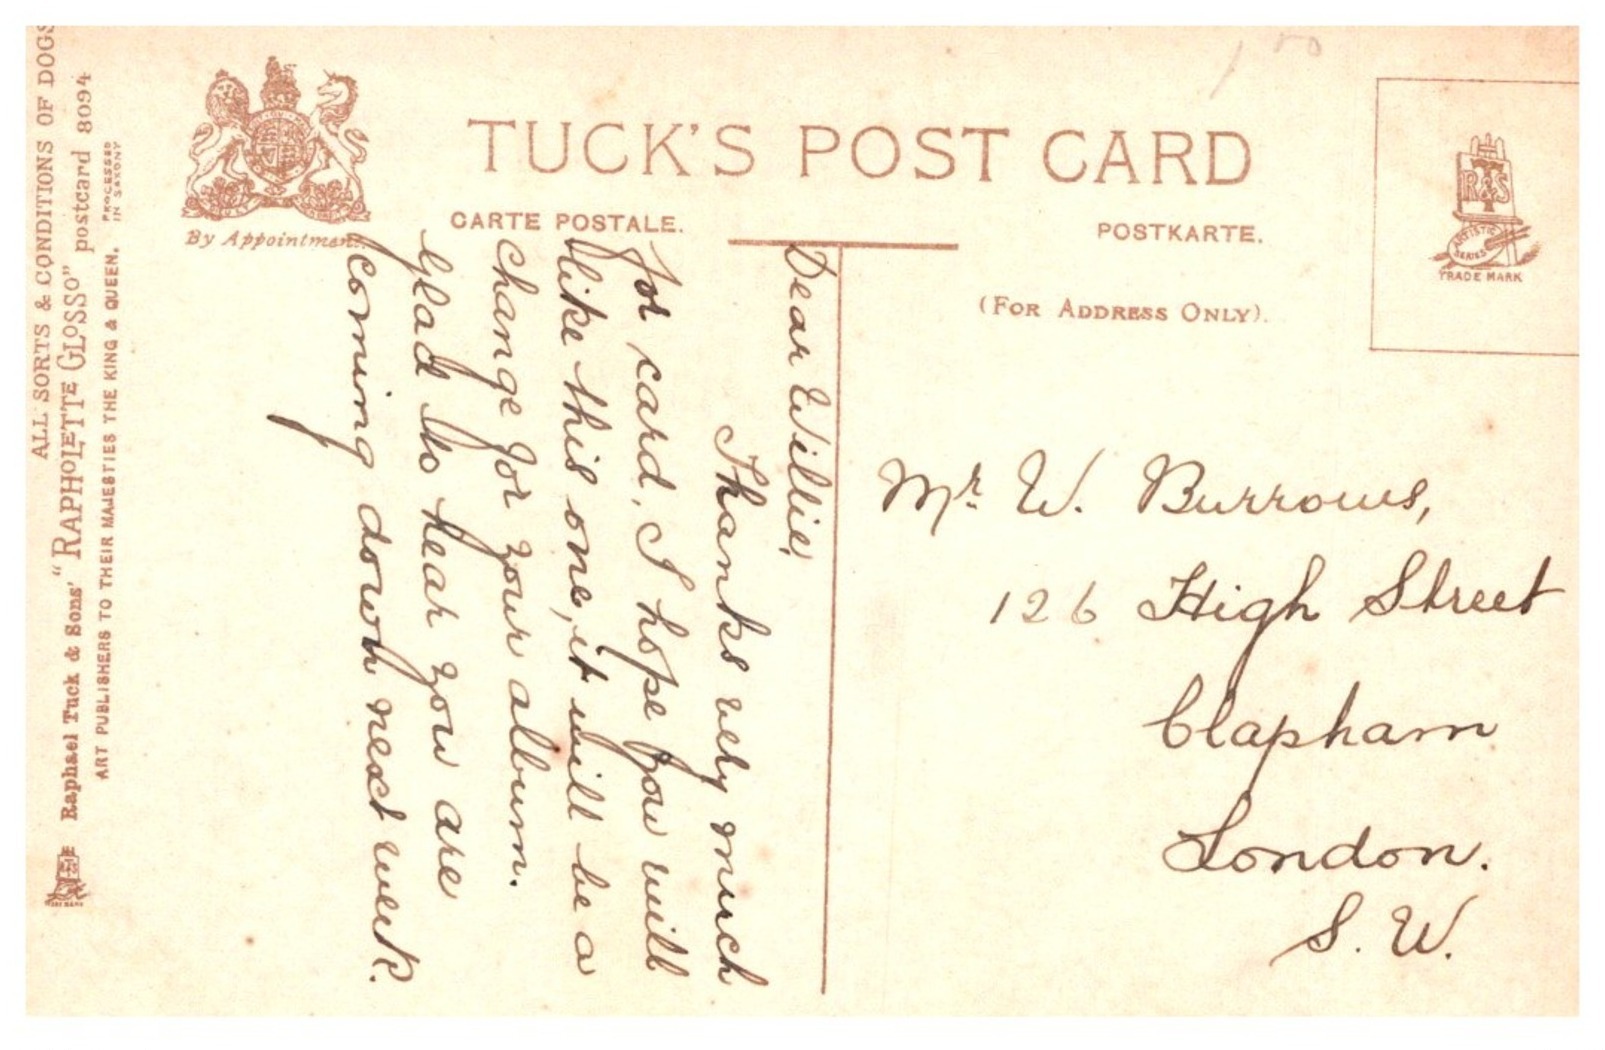 ALL SORTS & CONDITIONS OF DOGS
Raphael Tuck & Sons' "RAPHOLETTE GLOSSO" postcard 8094
ART PUBLISHERS TO THEIR MAJESTIES THE KING & QUEEN.
PROCESSED
IN SAXONY
By Appointment.
TUCK'S POST CARD
CARTE POSTALE.
POSTKARTE.
(FOR ADDRESS ONLY).
R&S
ARTISTIC
SERIES
TRADE MARK
1 00
Dear Willie,
Thanks very much
for card, I hope you will
like this one, it will be a
change for your album.
Glad to hear you are
coming down next week.
Mr W. Burrows,
126 High Street
Clapham
London.
S. W.